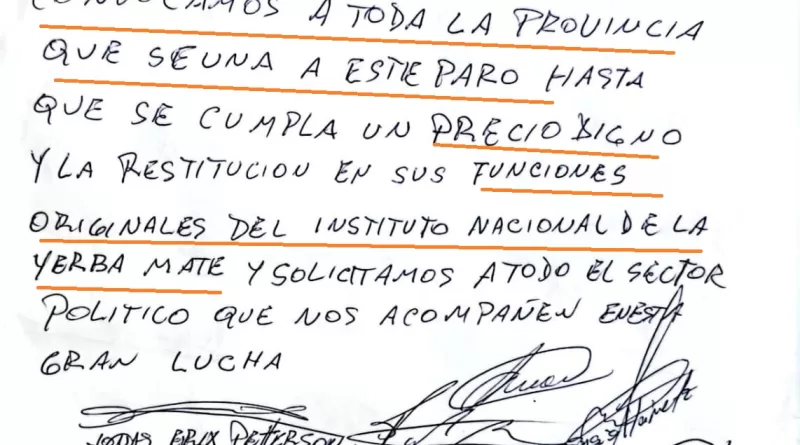 CONVOCAMOS A TODA LA PROVINCIA
QUE SE UNA A ESTE PARO HASTA
QUE SE CUMPLA UN PRECIO DIGNO
Y LA RESTITUCION EN SUS FUNCIONES
ORIGINALES DEL INSTITUTO NACIONAL DE LA
YERBA MATE Y SOLICITAMOS A TODO EL SECTOR
POLITICO QUE NOS ACOMPAÑEN EN ESTA
GRAN LUCHA
ERIX PETTERSON